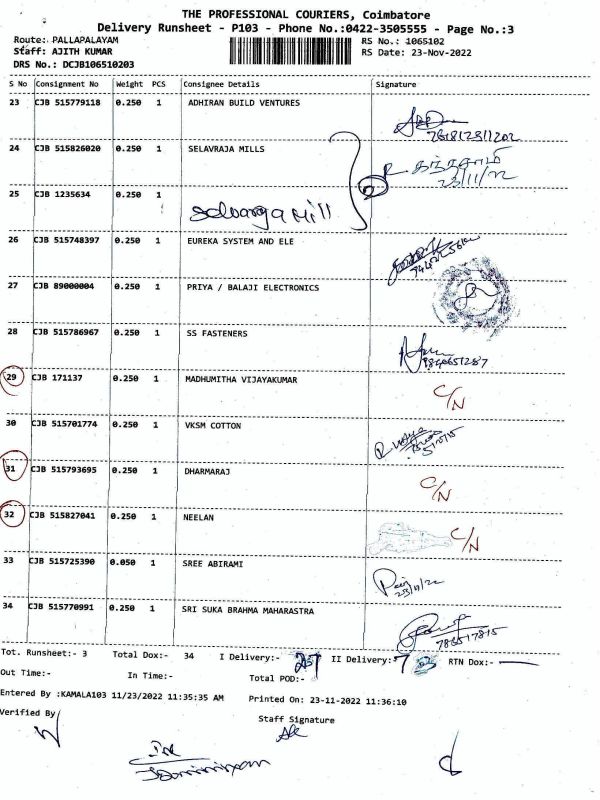 THE PROFESSIONAL COURIERS, Coimbatore
Delivery Runsheet - P103 - Phone No.:0422-3505555 - Page No.:3
Route:- PALLAPALAYAM RS No.: 1065102
Staff: AJITH KUMAR RS Date: 23-Nov-2022
DRS No.: DCJB106510203
S No Consignment No Weight PCS Consignee Details Signature
23 CJB 515779118 0.250 1 ADHIRAN BUILD VENTURES
24 CJB 515826020 0.250 1 SELAVRAJA MILLS
23/11/22
25 CJB 1235634 0.250 1
26 CJB 515748397 0.250 1 EUREKA SYSTEM AND ELE
27 CJB 89000004 0.250 1 PRIYA / BALAJI ELECTRONICS
28 CJB 515786967 0.250 1 SS FASTENERS
29 CJB 171137 0.250 1 MADHUMITHA VIJAYKUMAR C/N
30 CJB 515701774 0.250 1 VKSM COTTON
31 CJB 515793695 0.250 1 DHARMARAJ C/N
32 CJB 515827041 0.250 1 NEELAN C/N
33 CJB 515725390 0.050 1 SREE ABIRAMI
23/11/22
34 CJB 515770991 0.250 1 SRI SUKA BRAHMA MAHARASTRA
Tot. Runsheet:- 3 Total Dox:- 34 I Delivery:- II Delivery:- RTN Dox:-
Out Time:- In Time:- Total POD:-
Entered By :KAMALA103 11/23/2022 11:35:35 AM Printed On: 23-11-2022 11:36:10
Verified By Staff Signature